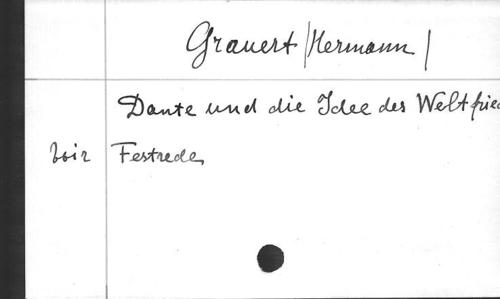 Grauert /Hermann/
Dante und die Idee des Weltfrie
Festrede,